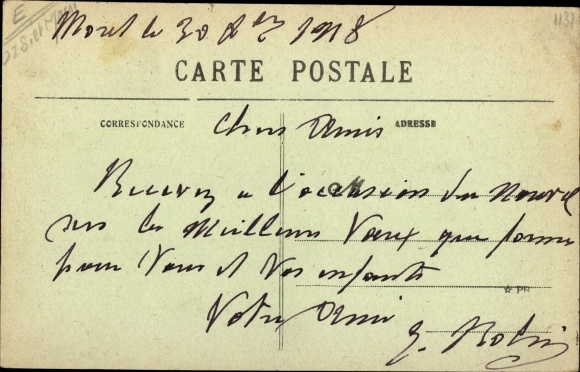 E
1137
Moret le 30 Xbre 1918
CARTE POSTALE
CORRESPONDANCE
ADRESSE
Chers Amis
Recevez à l'occasion du Nouvel
ans les Meilleurs Vœux que forme
pour Vous et Vos enfants
PR
Votre Ami